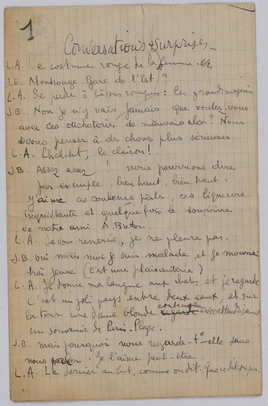 1
Conversations surprises
L.A. Le costume rouge de la femme.
Le Montrouge-Gare de l'Est ?
L.A. Se perdre à bâtons rompus : les grands magasins
J.B. Non je n'y vais jamais que voulez-vous
avec ces cachoteries de mauvais aloi ? Nous
devons penser à des choses plus sérieuses.
L.A. Chchcht, le clairon !
J.B. Assez assez ! nous pourrions dire
par exemple, bien haut, bien haut :
j'aime ces couleurs pâles, ces liqueurs
inquiétantes et quelquefois le sourire
de notre ami A. Breton.
L.A. Savon renversé, je ne pleure pas.
J.B. oui mais moi je suis malade et je mourrai
très jeune (c'est une plaisanterie)
L.A. Je donne ma langue aux chats et je regarde
C'est un joli pays entre deux eaux, et sur
la tour une dame blonde
un souvenir de Paris-Plage.
J.B. mais pourquoi nous regarde-t-elle sans
nous : Je l'aime peut-être.
L.A. Le dernier au but, comme on dit.